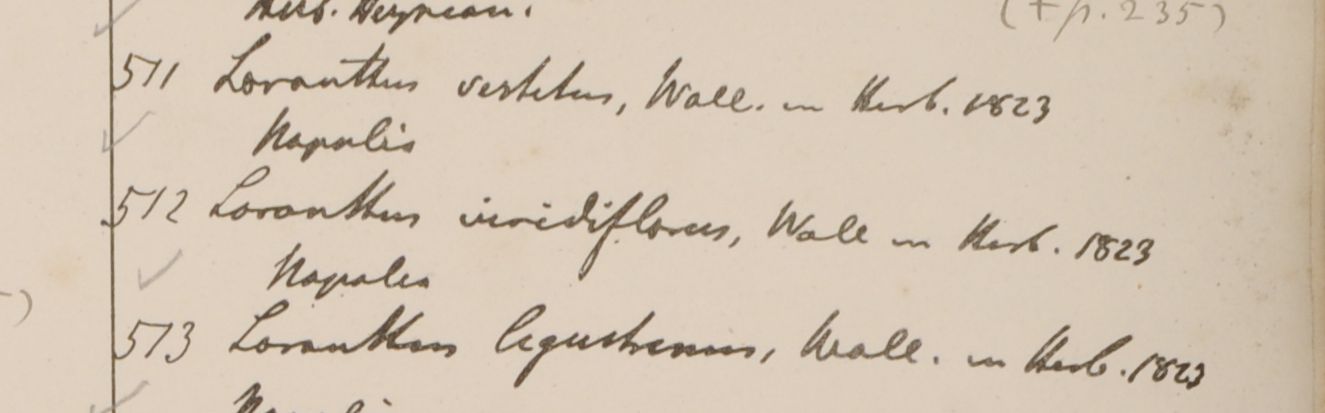 Herb. Heynean.
(+ p. 235)
511 Loranthus vestitus, Wall. in Herb. 1823
Napalia
512 Loranthus viridiflorus, Wall in Herb. 1823
Napalia
513 Loranthus ligustrinus, Wall. in Herb. 1823
Napalia